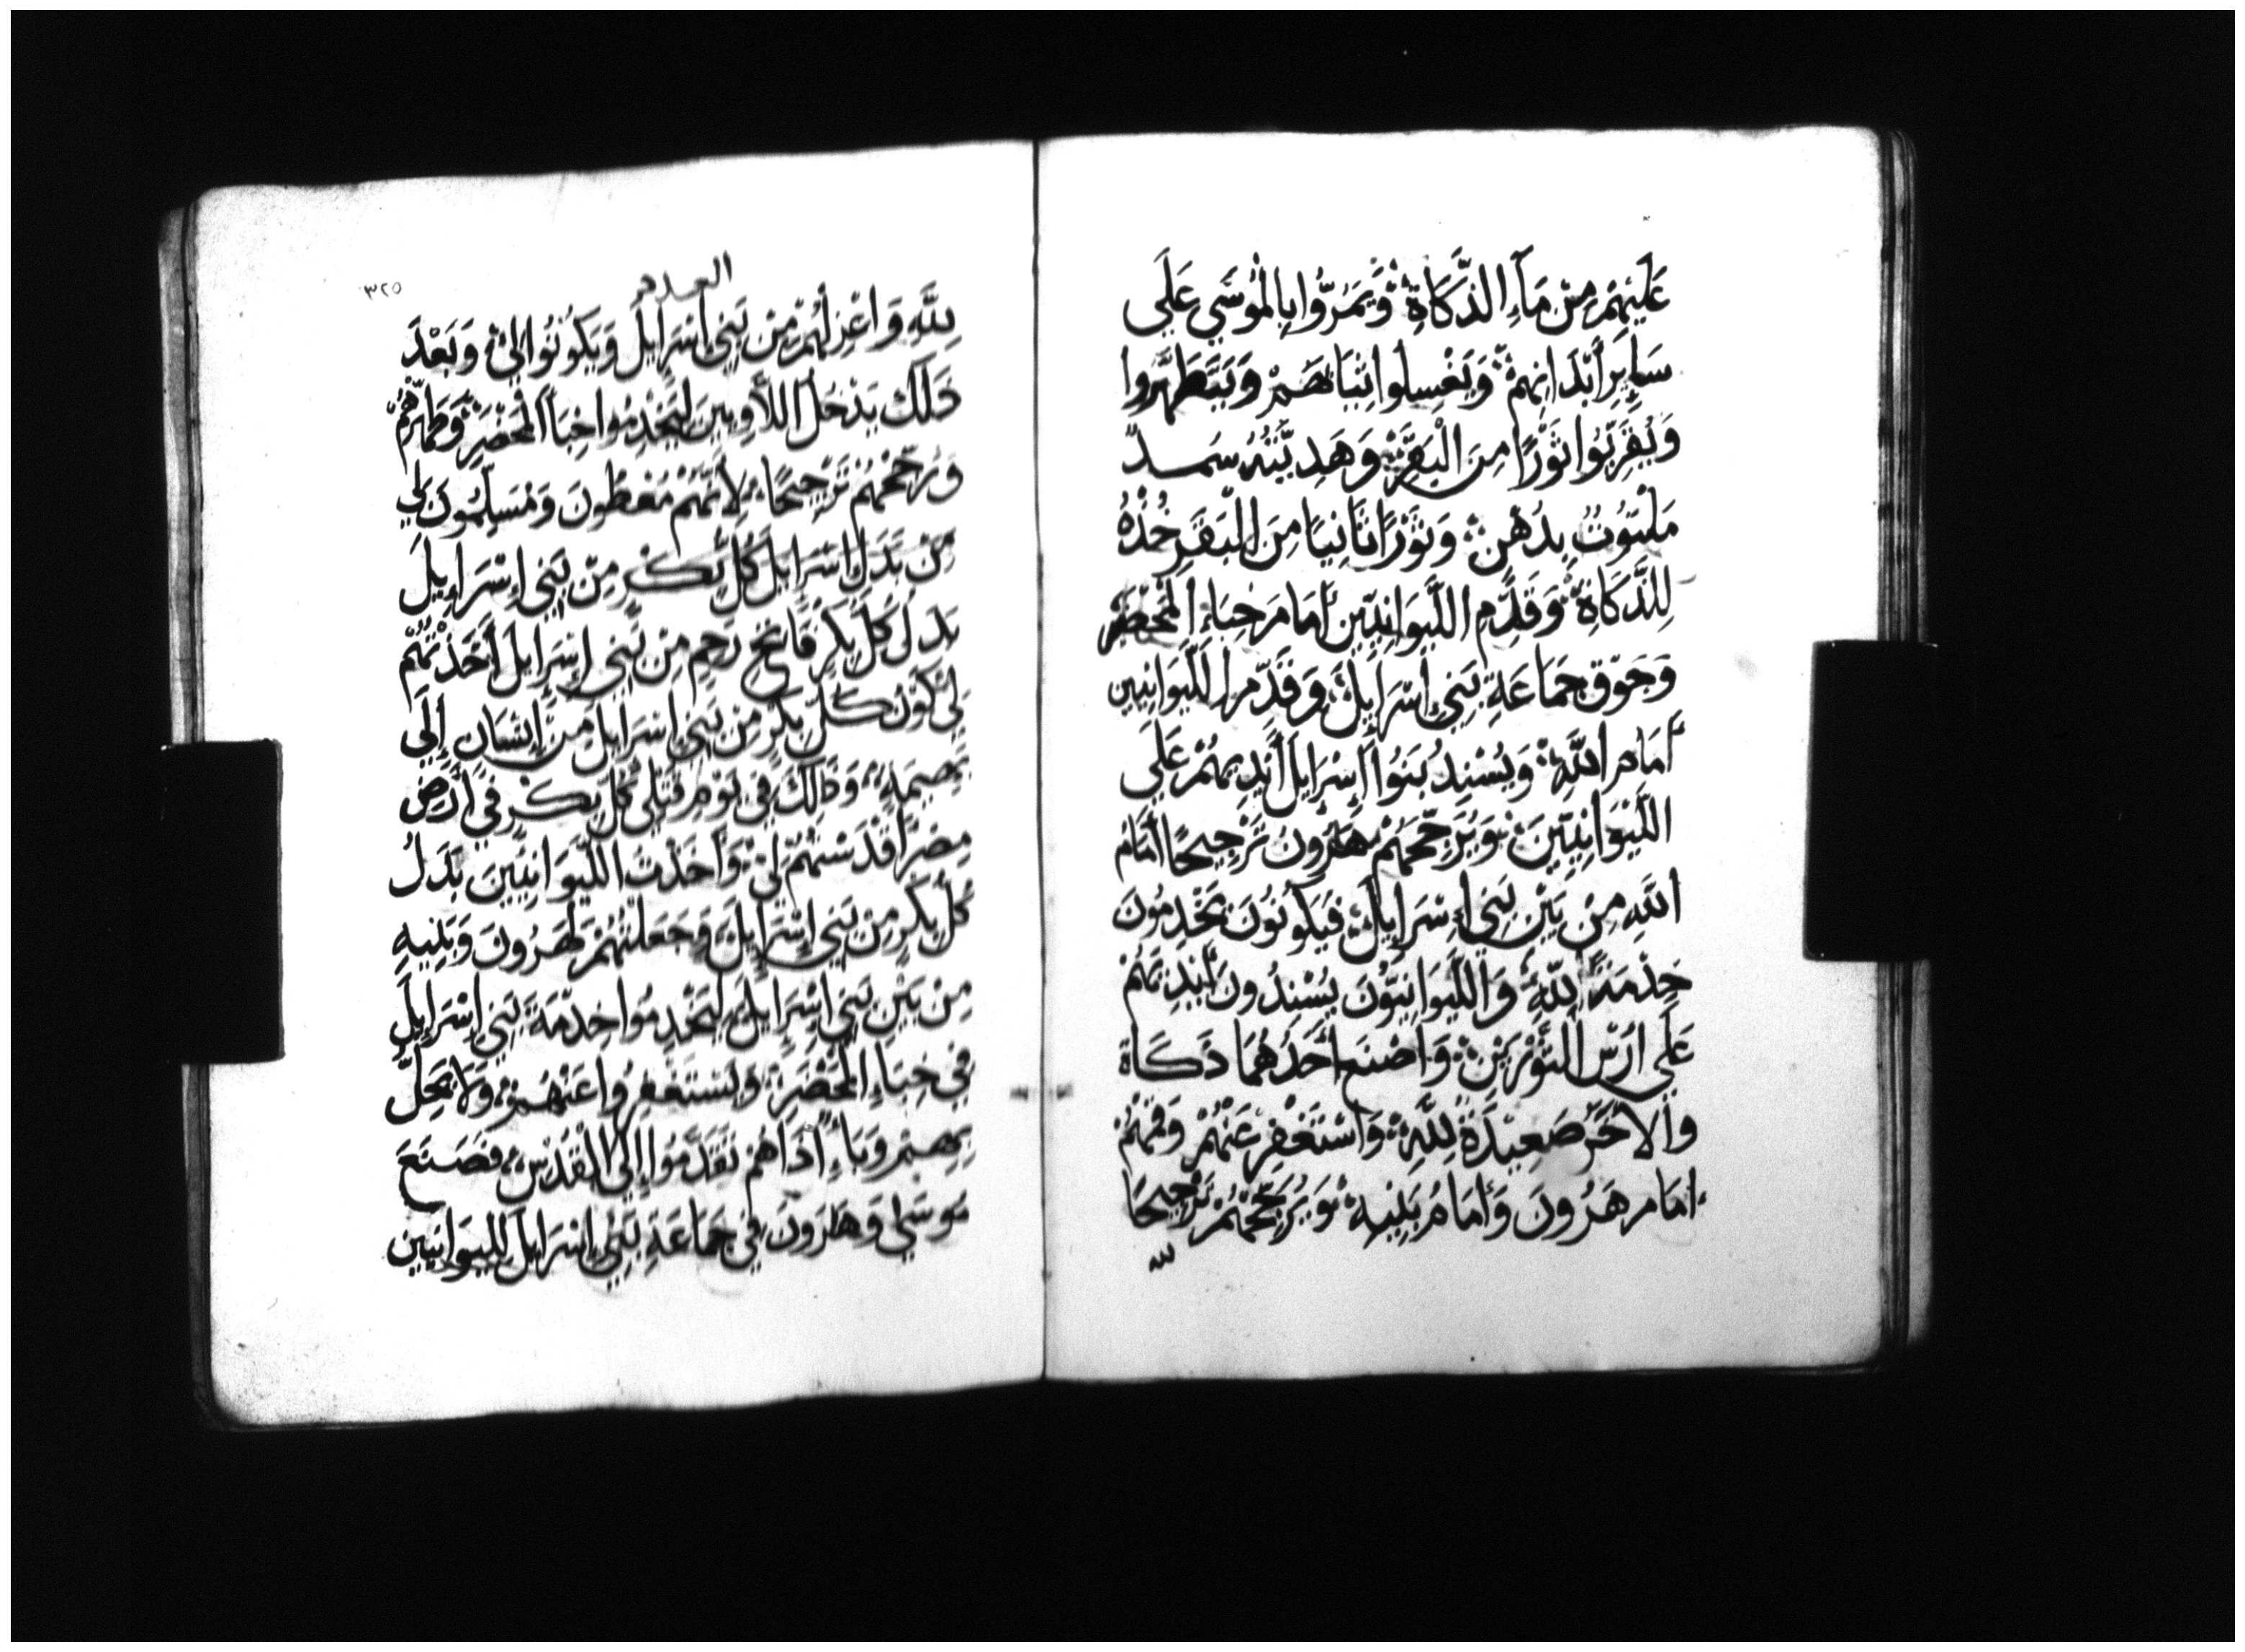 عَلَيْهِمْ مِنْ مَآءِ الذَّكَاةِ وَيَمُرُّوا بِالْمُوسَي عَلَي
سَايِرِ أَبْدَانِهِمْ وَيَغْسِلوا ثِيَابَهُمْ وَيَتَطَهَّروا
وَيُقَرِّبُوا ثَوْرًا مِنَ الْبَقَرِ وَهَدِيَّتُهُ سَمِيدٌ
مَلْتُوتٌ بِدُهْنٍ وَثَوْرًا ثَانِيًا مِنَ الْبَقَرِ خُذْهُ
لِلذَّكَاةِ وَقَدِّمِ اللَّيْوَانِيِّينَ أَمَامَ خِبَاءِ الْمَحْضَرِ
وَجَوِّق جَمَاعَةِ بَنِي إِسْرَايِلَ وَقَدِّمِ اللَّيْوَانِيِّين
أَمَامَ اللَّهِ وَيُسْنِدُ بَنُوا إِسْرَايِلَ أَيْدِيهُمْ عَلَي
اللَّيْوَانِيِّينَ وَيُرَجِّحَهُمْ هَرُونُ تَرْجِيحًا أَمَامَ
اللَّهِ مِنْ بَيْنِ بَنِي إِسْرَايِلَ فَيَكُونُونَ يَخْدِمُونَ
خِدْمَةً لِلَّهِ وَاللَّيْوَانِيُّونَ يُسْنِدُونَ أَيْدِيَهُمْ
عَلَي ارُسِ الثَّوْرَيْنِ وَاصْنَع أَحَدَهُمَا ذَكَاة
وَالْأَخَرَ صَعِيدَةً لِلَّهِ وَاسْتَغْفِرْ عَنْهُمْ وَقِمْهُمْ
أَمَامَ هَرُونَ وَأَمَامَ بَنِيهِ وَيُرَجِّحْهُمْ تَرْجِيحًا
لله
العدد
٣٢٥
لِلَّهِ وَاعْزِلْهُمْ مِنْ بَنِي إِسْرَايِلَ وَيَكُونُوا لِيْ وَبَعْدَ
ذَلِكَ يَدْخُلُ اللَّاوِيينَ لِيَخْدِمُوا خِبَأَ الْمَحْضَرِ وَطَهِّرْهُمْ
وَرَجِّحْهُمْ تَرْجِيحًا لِأَنَّهُمْ مُعْطَونَ وَمُسَلَّمُونَ لِي
مِنْ بَدَلِ اسْرَايِلَ كُلَّ بِكْرٍ مِنْ بَنِي إِسْرَايِلَ
بَدَلَ كُلِّ بِكْرٍ فَاتِحٍ رَحِمٍ مِنْ بَنِي إِسْرَايِلَ أَخَذْتُهُمْ
لِي كَوْن كُلّ بِكْرٍ مِنْ بَنِي إِسْرَايِلَ مِنْ إِنْسَانٍ إِلَي
بَهِيمَةٍ وَذَالِكَ فِي يَوْمِ قَتْلِي كُلَّ بِكْرٍ فِي أَرْضِ
مِصْرَ قَدَّسْتُهُمْ لِيْ وَأَخَذْتُ اللَّيْوَانِيِّينَ بَدَلَ
كُلِّ بِكْرٍ مِنْ بَنِي إِسْرَايِلَ وَجَعَلْتُهُمْ لِهَرُونَ وَبَنِيهِ
مِنْ بَيْنِ بَنِي إِسْرَايِلَ لِيَخْدِمُوا خِدْمَةَ بَنِي إِسْرَايِلَ
فِي خِبَاءِ الْمَحْضَرِ وَيَسْتَغْفِرُوا عَنْهُمْ وَلَا يَحِلُّ
بِهِمْ وَبَاءٌ إِذَا هُمْ تَقَدَّمُوا إِلَي الْمَقْدِسِ فَصَنَعَ
مُوسَي وَهَرُونَ فِي جَمَاعَةِ بَنِي إِسْرَايِلَ لِلَّيْوَانِيِّينَ